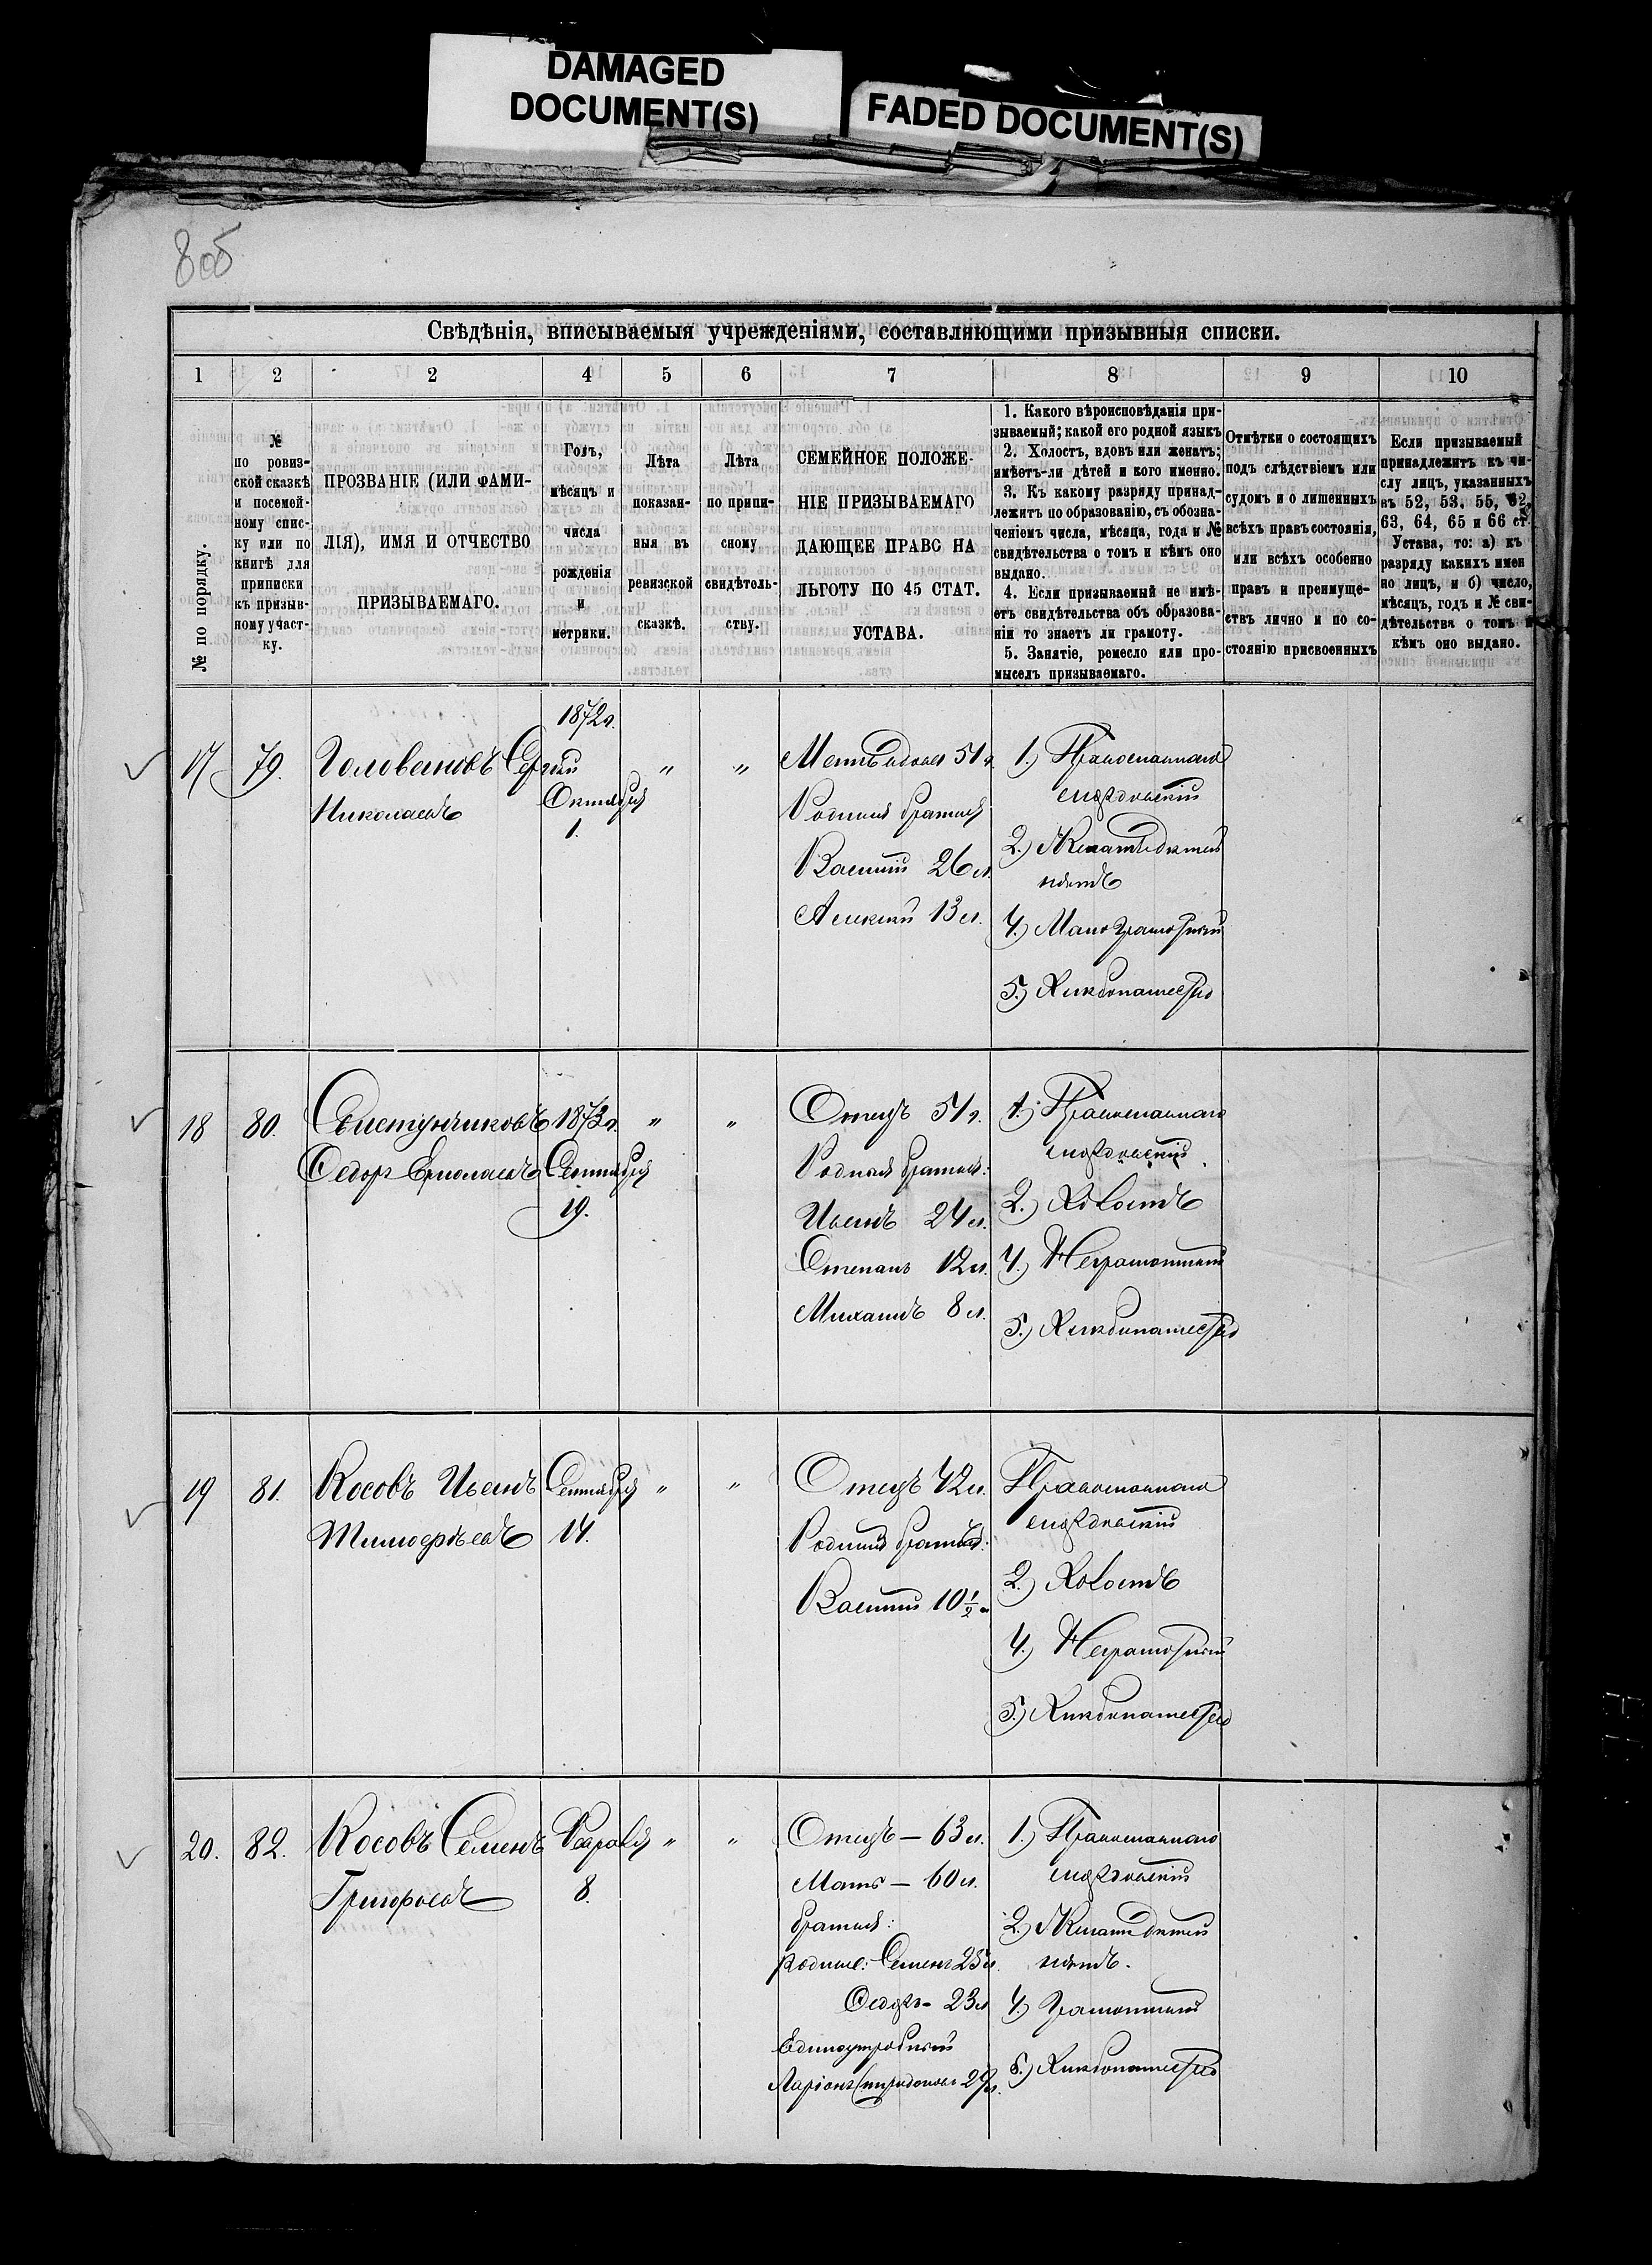 DAMAGED
DOCUMENT(S)
FADED DOCUMENT(S)
8об
Свѣдѣнія, вписываемыя учрежденіями, составляющими призывныя списки.
1 2 2 4 5 6 7 8 9 10
№ по порядку.
№
по ровиз-
ской сказкѣ
и посемей-
ному спис-
ку или по
книгѣ для
приписки
къ призыв-
ному участ-
ку.
ПРОЗВАНІЕ (ИЛИ ФАМИ-
ЛІЯ), ИМЯ И ОТЧЕСТВО
ПРИЗЫВАЕМАГО.
Годъ,
мѣсяцъ и
числа
рожденія
и
метрики.
Лѣта
показан-
ныя въ
ревизской
сказкѣ.
Лѣта
по припи-
сному
свидѣтель-
ству.
СЕМЕЙНОЕ ПОЛОЖЕ-
НІЕ ПРИЗЫВАЕМАГО
ДАЮЩЕЕ ПРАВО НА
ЛЬГОТУ ПО 45 СТАТ.
УСТАВА.
1. Какого вѣроисповѣданія при-
зываемый; какой его родной языкъ
2. Холостъ, вдовъ или женатъ;
имѣетъ-ли дѣтей и кого именно.
3. Къ какому разряду принад-
лежитъ по образованію, съ обозна-
ченіемъ числа, мѣсяца, года и №
свидѣтельства о томъ и кѣмъ оно
выдано.
4. Если призываемый не имѣ-
етъ свидѣтельства объ образова-
ніи то знаетъ ли грамоту.
5. Занятіе, ремесло или про-
мыселъ призываемаго.
Отмѣтки о состоящихъ
подъ слѣдствіемъ или
судомъ и о лишенныхъ
всѣхъ правъ состоянія,
или всѣхъ особенно
правъ и преимуще-
ствъ лично и по со-
стоянію присвоенныхъ
Если призываемый
принадлежитъ къ чи-
слу лицъ, указанныхъ
въ 52, 53, 55, 62,
63, 64, 65 и 66 ст.
Устава, то: а) къ
разряду какихъ имен
но лицъ, и б) число,
мѣсяцъ, годъ и № сви-
дѣтельства о томъ и
кѣмъ оно выдано.
17 79. Головановъ Сергѣй
Николаевъ
1872г.
Октября
1.
" "
Мать вдова 51 г.
Родныя братья
Василій 26 л.
Алексѣй 13 л.
1.) Православнаго
мордовскій
2.) Женатъ дѣтей
нѣтъ
4.) Малограмотный
5.) Хлѣбопашество
18 80. Свистунчиковъ
Ѳедоръ Ермолаевъ
1873г.
Сентября
19.
" "
Отецъ 51 г.
Родныя братья:
Иванъ 24 л.
Степанъ 12 л.
Михаилъ 8 л.
1.) Православнаго
мордовскій
2.) Холостъ
4.) Неграмотный
5.) Хлѣбопашество
19 81. Косовъ Иванъ
Тимоѳѣевъ
Сентября
14.
" "
Отецъ 42 л.
Родныя братья:
Василій 10 ½
Православнаго
мордовскій
2.) Холостъ
4.) Неграмотный
5.) Хлѣбопашество
20. 82. Косовъ Семенъ
Григорьевъ
Февраля
8.
" "
Отецъ — 63 л.
Мать — 60 л.
братья:
родные: Семенъ 25 л.
Ѳедоръ - 23 л.
Единоутробный
Ларіонъ Спиридоновъ 29 л.
1.) Православнаго
мордовскій
2.) Женатъ дѣтей
нѣтъ.
4.) Грамотный
5.) Хлѣбопашество